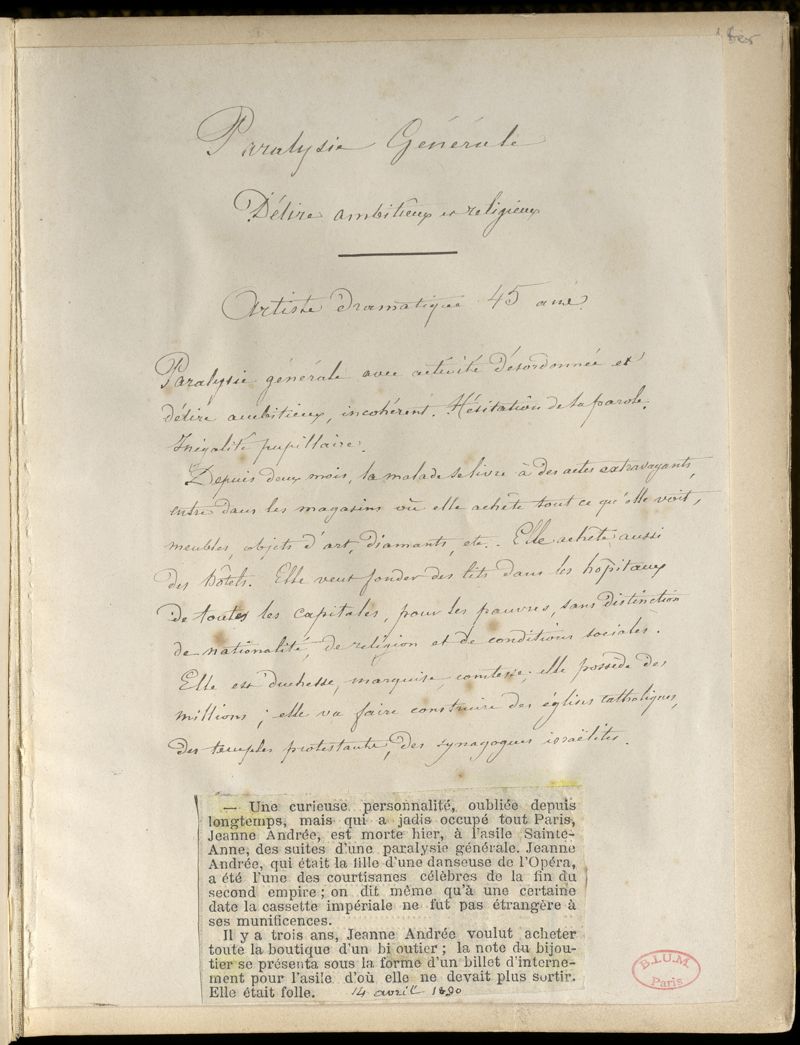 Paralysie Générale
Délire ambitieux et religieux
Artiste dramatique 45 ans.
Paralysie générale avec activité désordonnée et
délire ambitieux, incohérent. Hésitation de la parole.
Inégalité pupillaire.
Depuis deux mois, la malade se livre à des actes extravagants,
entre dans les magasins où elle achète tout ce qu'elle voit,
meubles, objets d'art, diamants, etc. Elle achète aussi
des hôtels. Elle veut fonder des lits dans les hôpitaux
de toutes les capitales, pour les pauvres, sans distinction
de nationalité, de religion et de conditions sociales.
Elle est duchesse, marquise, comtesse; elle possède des
millions; elle va faire construire des églises catholiques,
des temples protestants, des synagogues israëlites.
— Une curieuse personnalité, oubliée depuis
longtemps, mais qui a jadis occupé tout Paris,
Jeanne Andrée, est morte hier, à l'asile Sainte-
Anne, des suites d'une paralysie générale. Jeanne
Andrée, qui était la fille d'une danseuse de l'Opéra,
a été l'une des courtisanes célèbres de la fin du
second empire; on dit même qu'à une certaine
date la cassette impériale ne fut pas étrangère à
ses munificences.
Il y a trois ans, Jeanne Andrée voulut acheter
toute la boutique d'un bi outier; la note du bijou-
tier se présenta sous la forme d'un billet d'interne-
ment pour l'asile d'où elle ne devait plus sortir.
Elle était folle. 14 avril 1890
B.I.U.M.
Paris